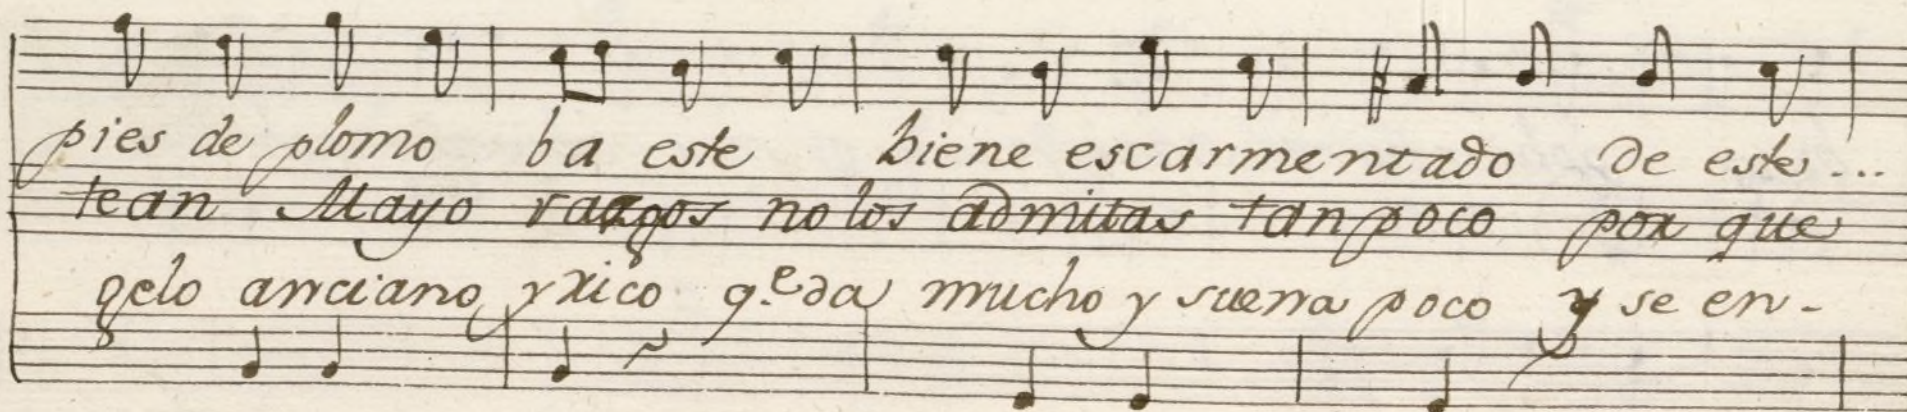 pies de plomo ba este biene escarmentado de este...
tean Mayo razgos no los admitas tanpoco por que
gelo anciano y rico q.e da mucho y suena poco y se en-